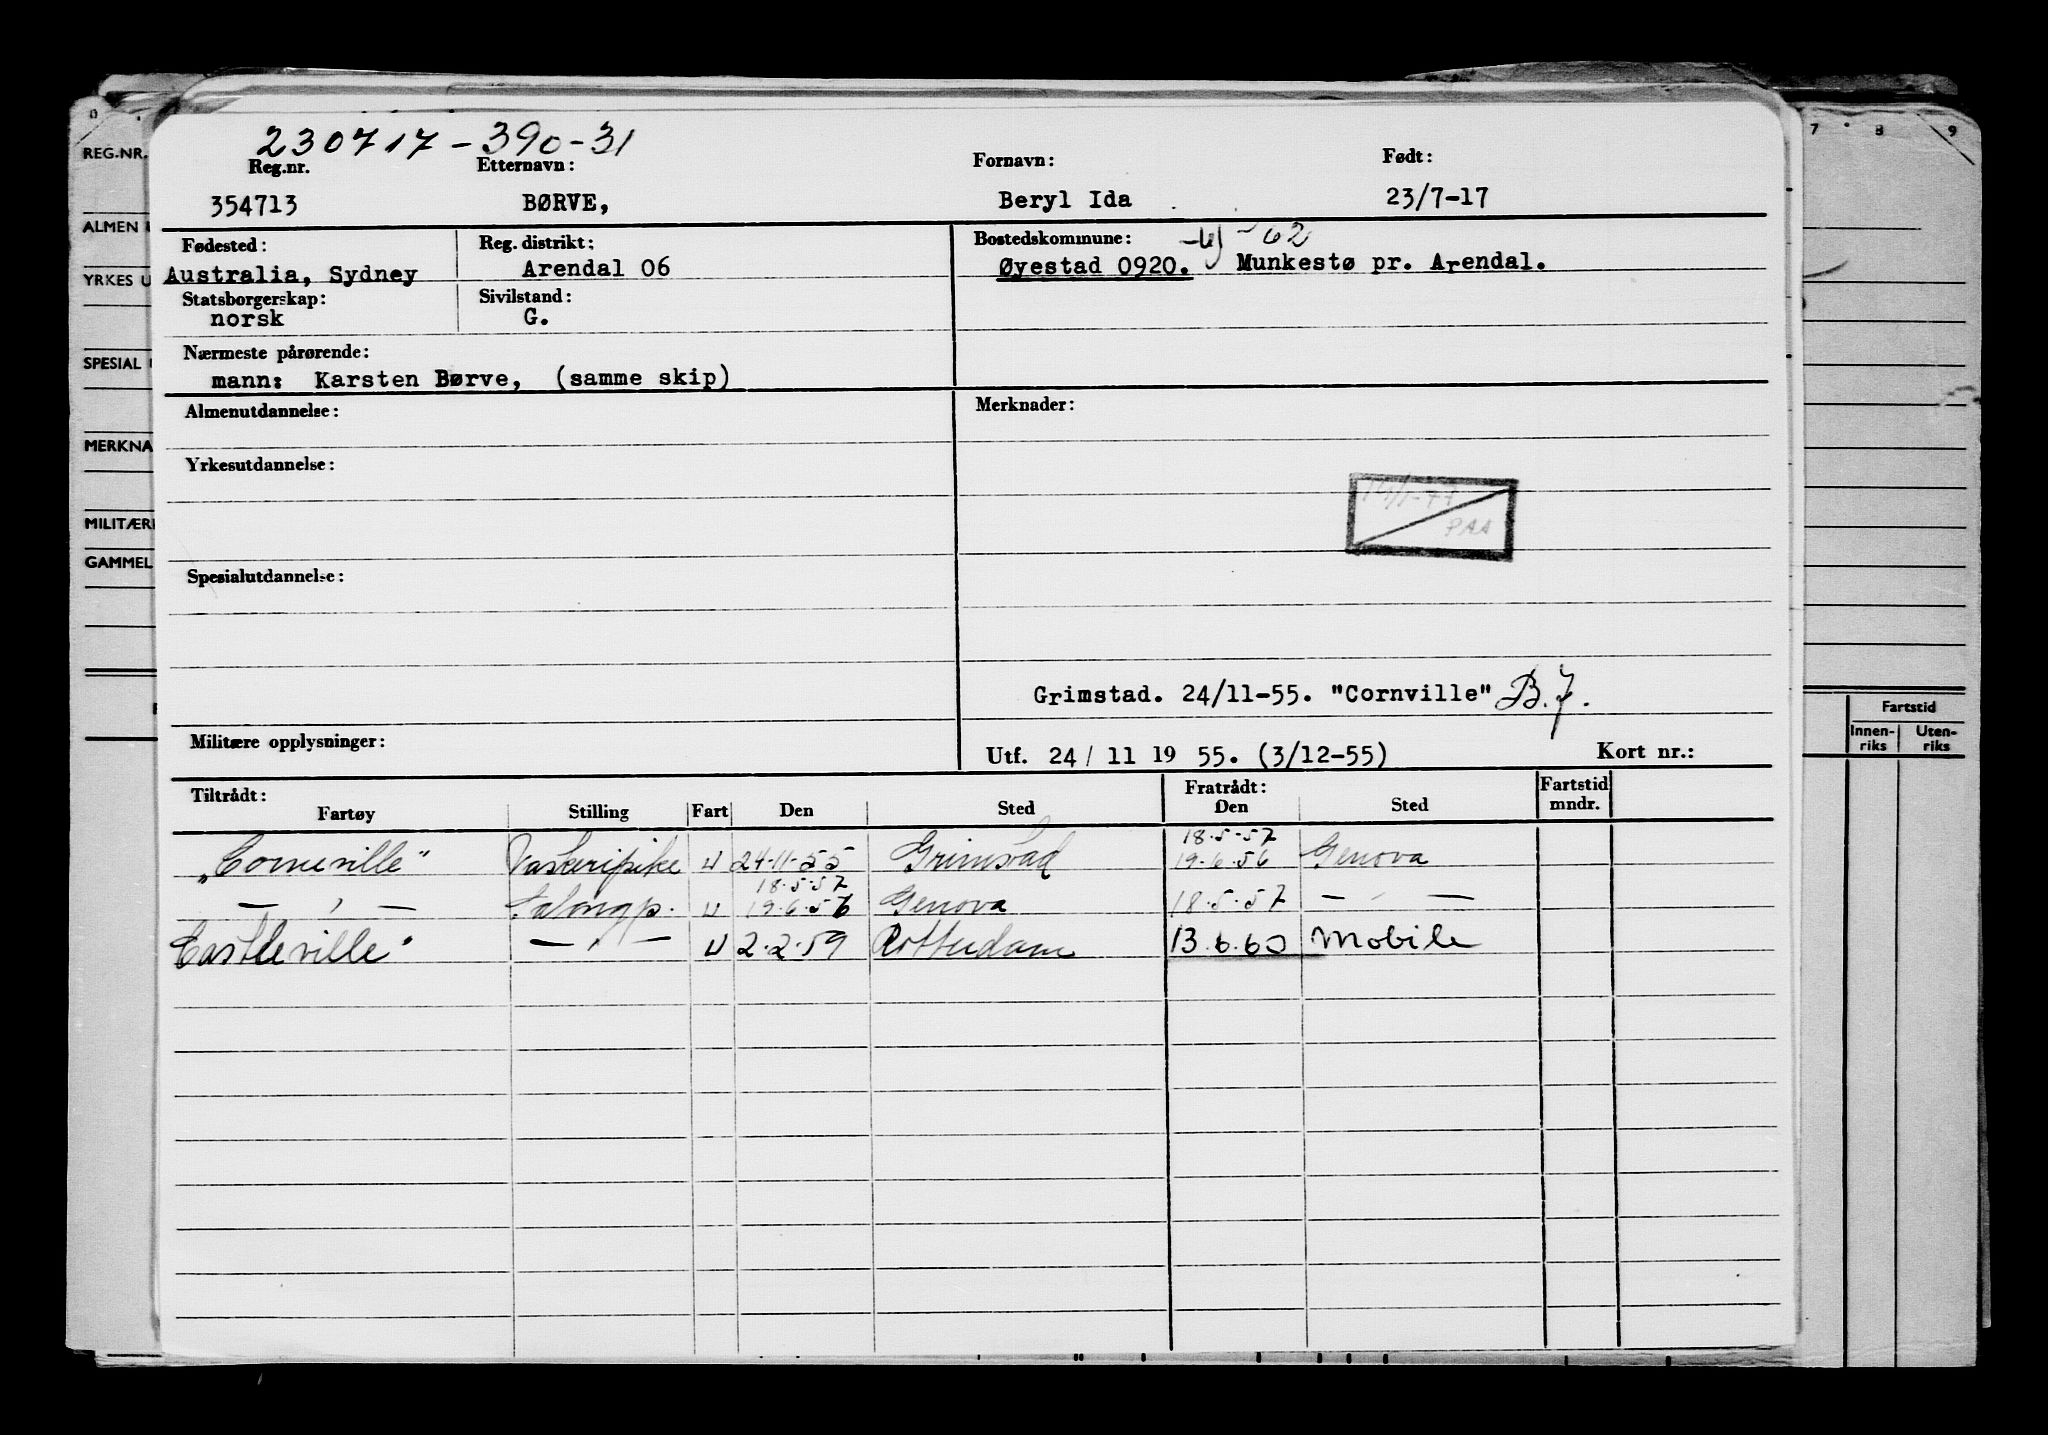 230717-390-31
Reg.nr. Etternavn: Fornavn: Født:
354713 BØRVE, Beryl Ida 23/7-17
Fødested: Reg. distrikt: Bostedskommune: -62
Australia, Sydney Arendal 06 Øyestad 0920. Munkestø pr. Arendal.
Statsborgerskap: Sivilstand:
norsk G.
Nærmeste pårørende:
mann: Karsten Børve, (samme skip)
Almenutdannelse: Merknader:
Yrkesutdannelse:
PAA
Spesialutdannelse:
Grimstad. 24/11-55. "Cornville" B.J.
Militære opplysninger: Utf. 24/ 11 19 55. (3/12-55) Kort nr.:
Tiltrådt: Fratrådt: Fartstid
Fartøy Stilling Fart Den Sted Den Sted mndr.
18.5-57
„Corneville" Vaskeripike U 24-11-55 Grimstad 19.6.56 Genova
18.5.57
— , — Salongp. U 19.6.56 Genova 18.5.57 — , —
Castleville" — , — U 2.2.59 Rotterdam 13.6.60 Mobile
0 7 8 9
REG.NR.
ALMEN
YRKES U
SPESIAL
MERKNA
MILITÆR
GAMMEL
Fartstid
Innen- Uten-
riks riks